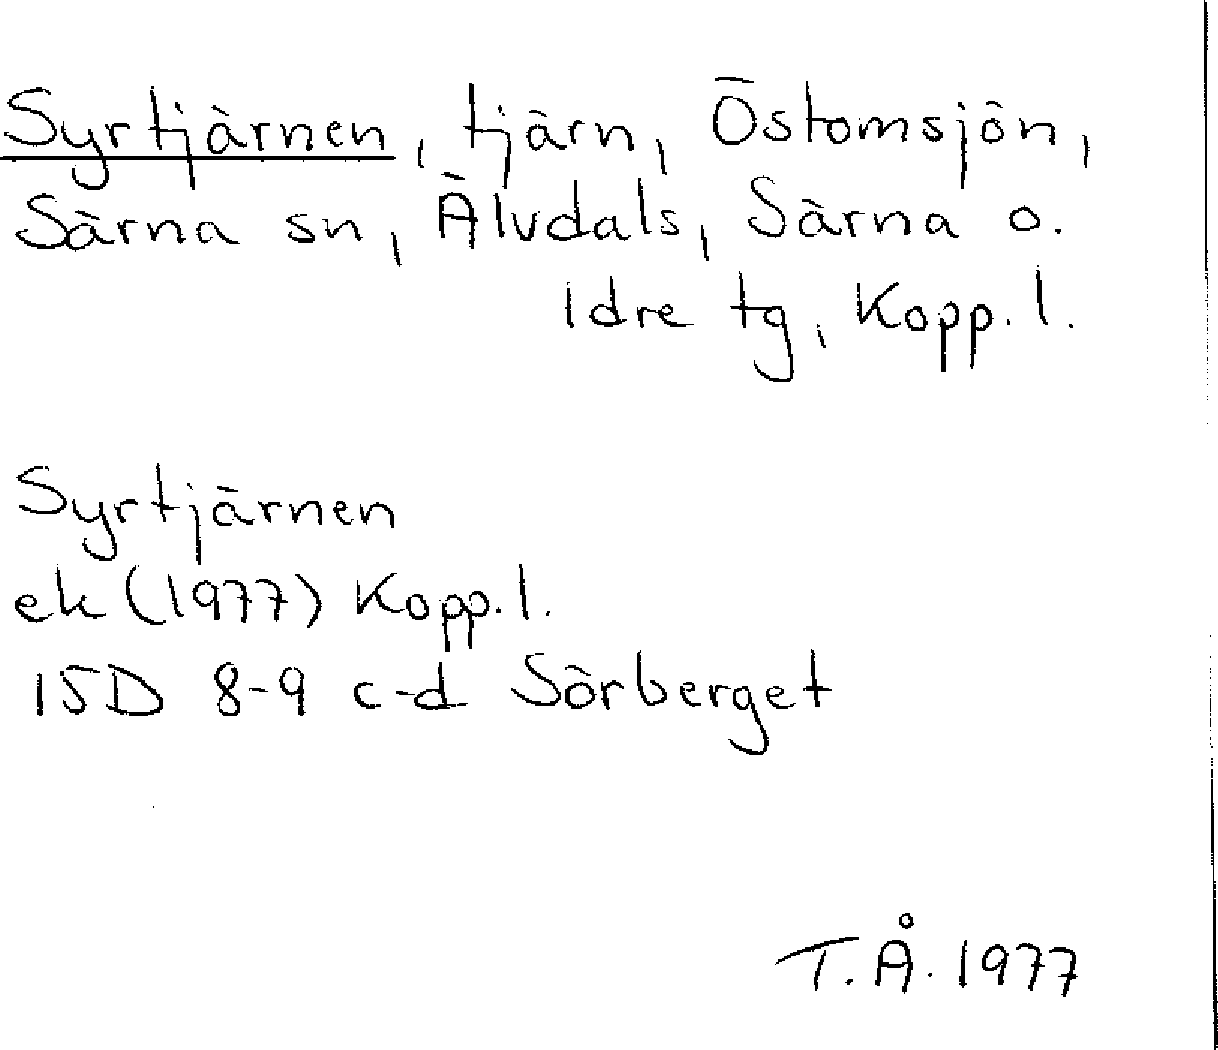 Syrtjärnen, tjärn, Östomsjön,
Särna sn, Älvdals, Särna o.
Idre tg, Kopp. l.
Syrtjärnen
ek (1977) Kopp. l.
15D 8-9 c-d Sörberget
T.Å. 1977